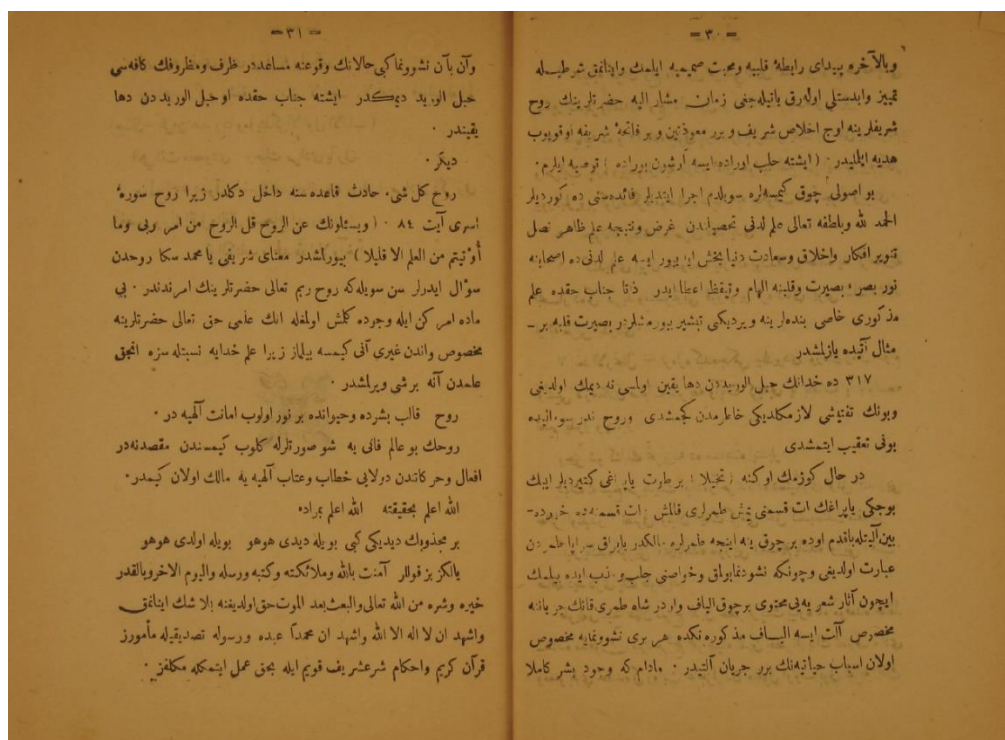 = ٣٠ =
وبالآخره پیدای رابطهٔ قلبیه ومحبت صمیمیه ایلمك واینانمق شرطیله
تمییز وابدستلی اوله‌رق یاتیله‌جغی زمان مشار الیه حضرتلرینك روح
شریفلرینه اوچ اخلاص شریف و برر معوذتین و بر فاتحهٔ شریفه اوقویوب
هدیه ایلملیدر ٠ (ایشته حلب اوراده ایسه آرشون بوراده) توصیه ایلرم ٠
بو اصولی چوق کیمسه‌لره سویلدم اجرا ایتدیلر فائده‌سنی ده کوردیلر
الحمد لله وبلطفه تعالی علم لدنی تحصیلندن غرض ونتیجه علم ظاهر نصل
تنویر افکار واخلاق وسعادت دنیا بخش ایدییور ایسه علم لدنی ده اصحابنه
نور بصر، بصیرت وقلبنه الهام وتیقظ اعطا ایدر ذتا جناب حقده علم
مذکوری خاصی بنده‌لرینه ویردیکی تبشیر بیورمشلردر بصیرت قلبه بر –
مثال آتیده یازلمشدر
٣١٧ ده خدانك حبل الوریددن دها یقین اولسی نه دیمك اولدیغی
وبونك تفتیشی لازمکلدیکی خاطرمدن کچمشدی وروح ندر سؤالیده
بونی تعقیب ایتمشدی
در حال کوزمك اوکنه (تخیلا) بر طوت یاپراغی کتیردیلر ایپك
بوجکی یاپراغك ات قسمنی یمش طمرلری قالمش ات قسمنده خرده–
بین آلتیله باقدم اوده بر چوق ینه اینجه طمرلره مالکدر یاپراق سراپا طمردن
عبارت اولدیغی وچونکه نشوونمابولمق وخواصنی جلب وجذب ایده بیلمك
ایچون آثار شعریه‌یی محتوی بر چوق الیاف واردر شاه طمری قانك جریاننه
مخصوص آلت ایسه الیاف مذکوره‌نکده هر بری نشوونمایه مخصوص
اولان اسباب حیاتیه‌نك برر جریان آلتیدر ٠ مادام که وجود بشر کاملا
= ٣١ =
وآن بآن نشوونما کبی حالانك وقوعنه مساعددر ظرف ومظروفك کافه‌سی
حبل الورید دیمکدر ایشته جناب حقده او حبل الوریددن دها
یقیندر ٠
دیکر ٠
روح کل شیٔ حادث قاعده‌سنه داخل دکلدر زیرا روح سورهٔ
اسری آیت ٨٤ ٠ (ویسئلونك عن الروح قل الروح من امر ربی وما
أوتیتم من العلم الا قلیلا) بیورلمشدر معنای شریفی یا محمد سکا روحدن
سؤال ایدرلر سن سویله‌که روح ربم تعالی حضرتلرینك امرندندر ٠ بی
ماده امر کن ایله وجوده کلمش اولمغله انك علمی حق تعالی حضرتلرینه
مخصوص واندن غیری آنی کیمسه بیلماز زیرا علم خدایه نسبتله سزه انجق
علمدن آنه بر شی ویرلمشدر ٠
روح قالب بشرده وحیوانده بر نور اولوب امانت آلهیه در ٠
روحك بو عالم فانی یه شو صورتلرله کلوب کیمسندن مقصدنه‌در
افعال وحرکاتندن دولایی خطاب وعتاب آلهیه یه مالك اولان کیمدر ٠
الله اعلم بحقیقته الله اعلم بمراده
بر مجذوبك دیدیکی کبی بویله دیدی هوهو بویله اولدی هوهو
یالکز بز قوللر آمنت بالله وملائکته وکتبه ورسله والیوم الاخر وبالقدر
خیره وشره من الله تعالی والبعث بعد الموت حق اولدیغنه بلا شك اینانمق
واشهد ان لا اله الا الله واشهد ان محمداً عبده ورسوله تصدیقیله مأمورز
قرآن کریم واحکام شرعشریف قویم ایله بحق عمل ایتمکله مکلفز ٠